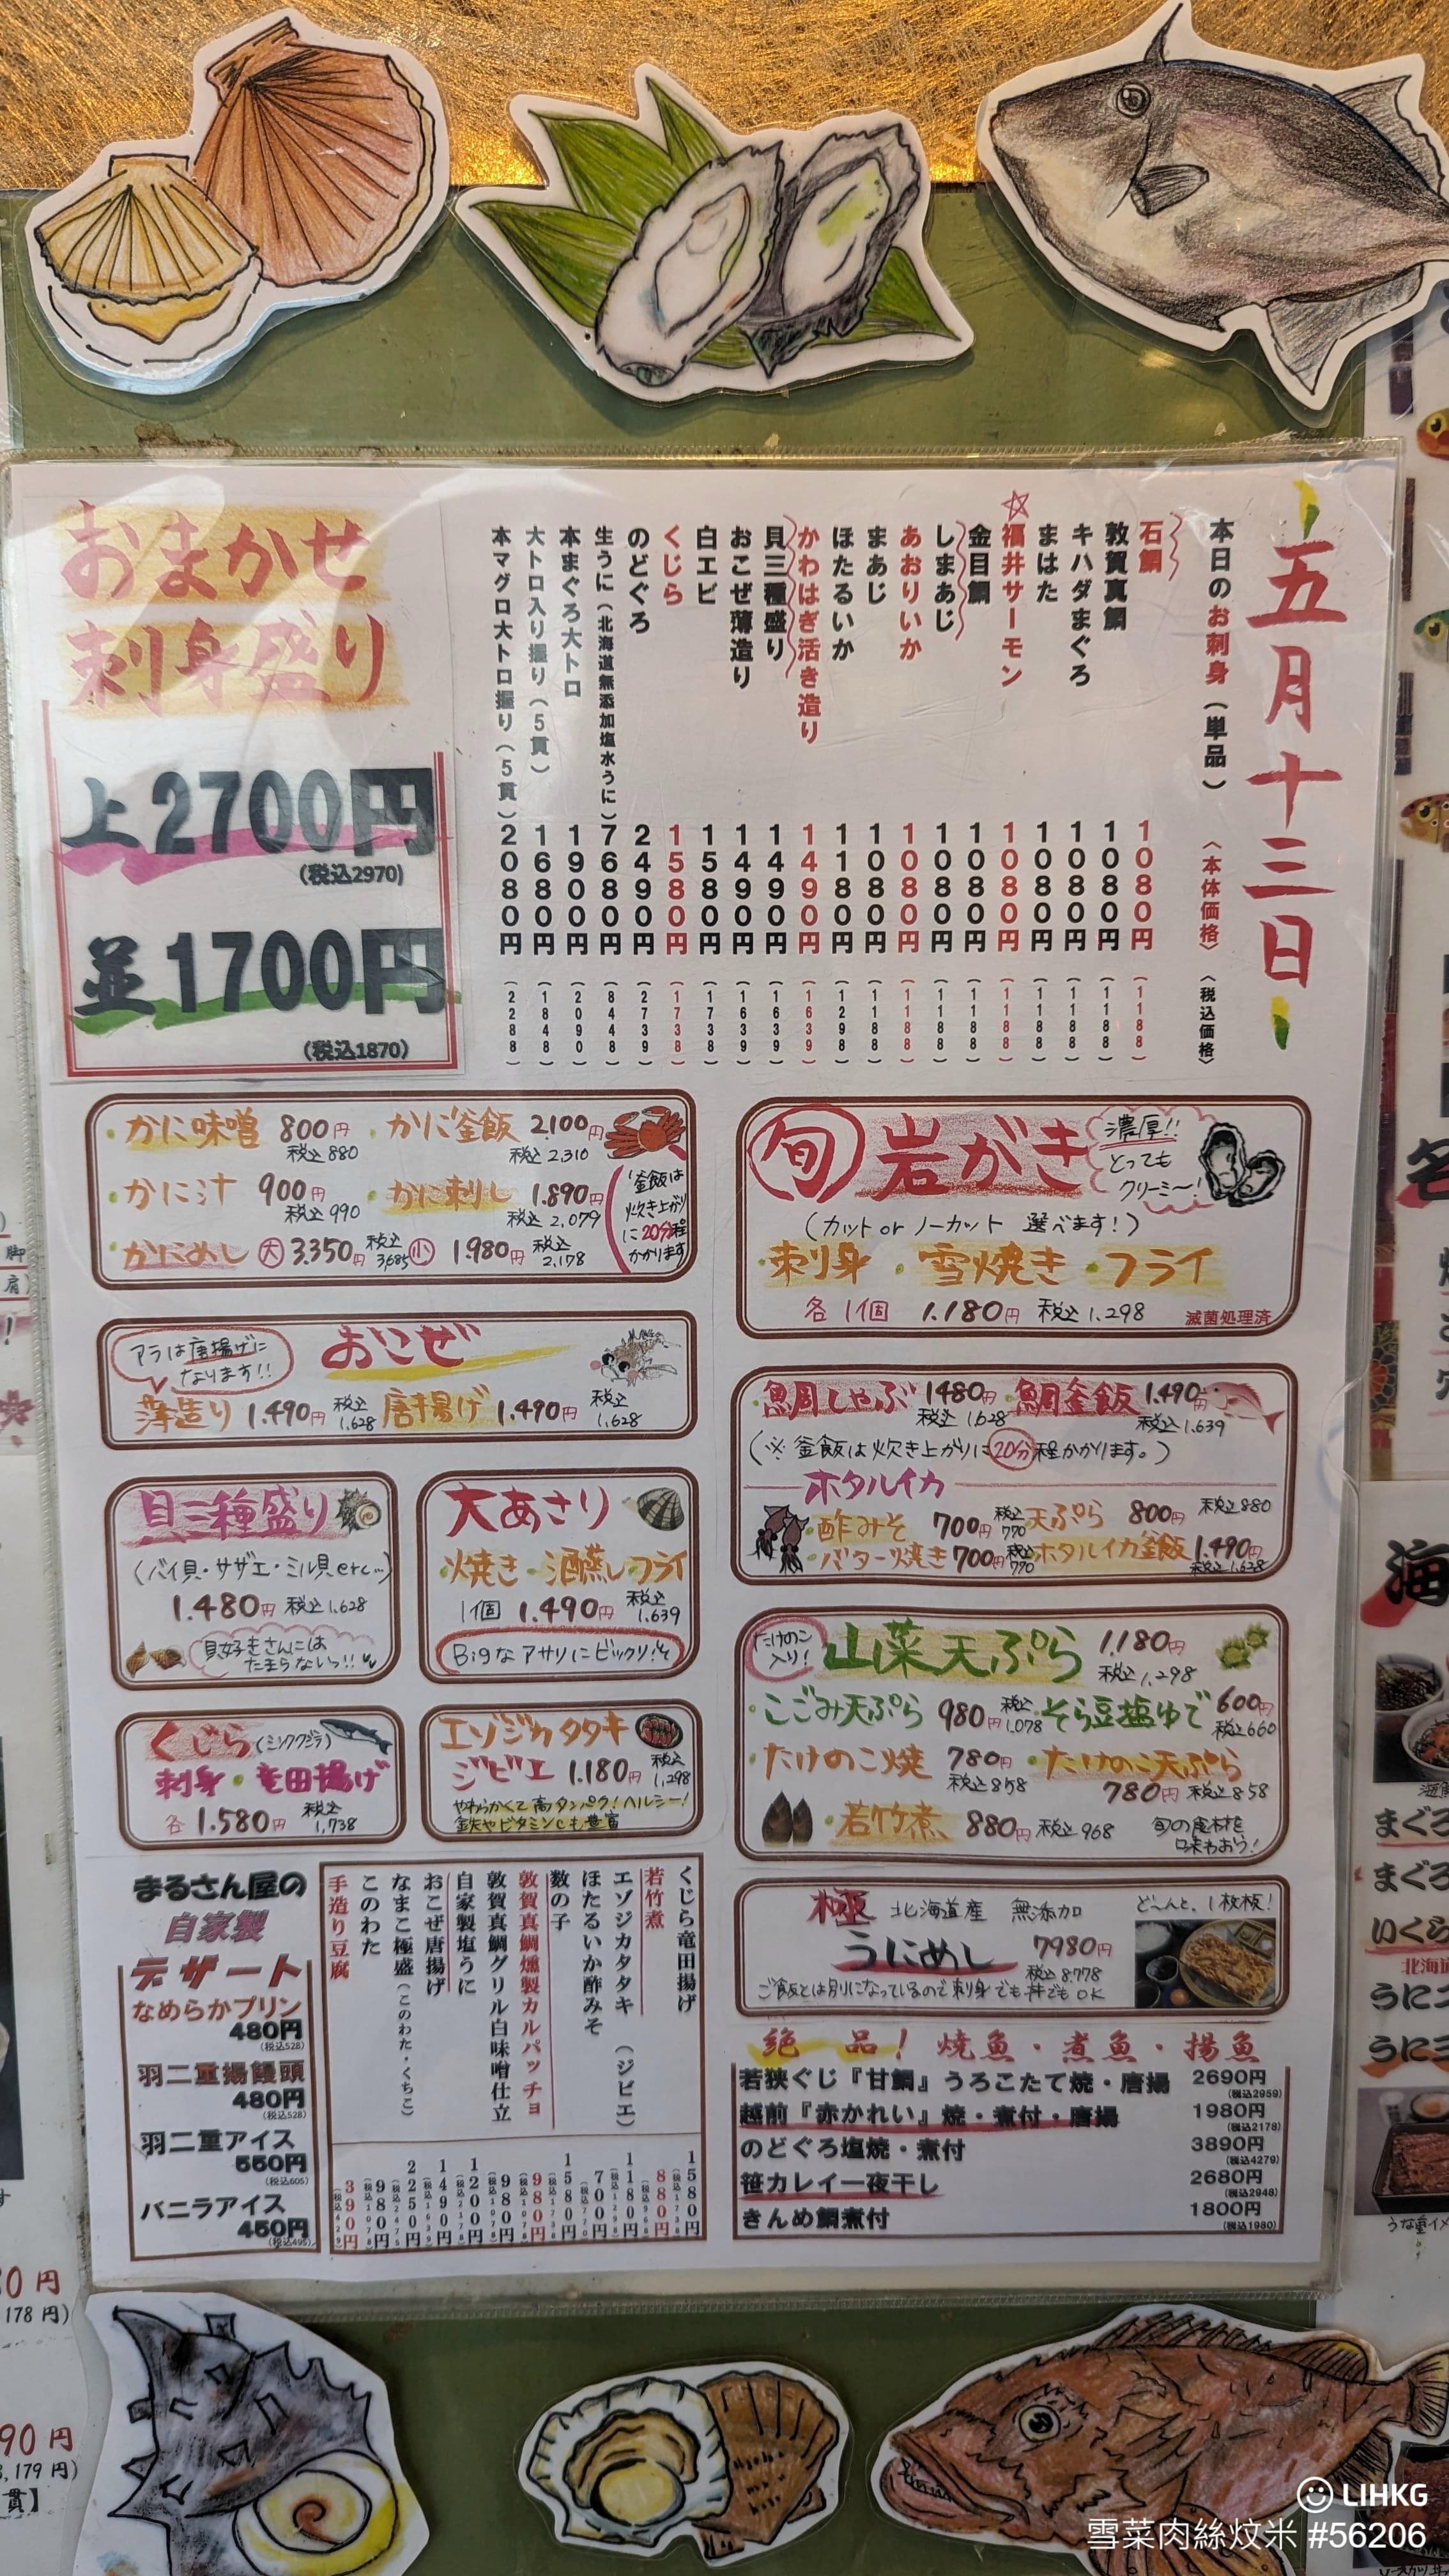 五月十三日
本日のお刺身（単品） 〈本体価格〉 〈税込価格〉
石鯛 1080円 (1188)
敦賀真鯛 1080円 (1188)
キハダまぐろ 1080円 (1188)
まはた 1080円 (1188)
☆福井サーモン 1080円 (1188)
金目鯛 1080円 (1188)
しまあじ 1080円 (1188)
あおりいか 1080円 (1188)
まあじ 1080円 (1188)
ほたるいか 1180円 (1298)
かわはぎ活き造り 1490円 (1639)
貝三種盛り 1490円 (1639)
おこぜ薄造り 1490円 (1639)
白エビ 1580円 (1738)
くじら 1580円 (1738)
のどぐろ 2490円 (2739)
生うに（北海道無添加塩水うに） 7680円 (8448)
本まぐろ大トロ 1900円 (2090)
大トロ入り握り（5貫） 1680円 (1848)
本マグロ大トロ握り（5貫） 2080円 (2288)
おまかせ
刺身盛り
上2700円
(税込2970)
並1700円
(税込1870)
・かに味噌 800円 税込880
・かに釜飯 2.100円 税込2.310
・かに汁 900円 税込990
・かに刺し 1.890円 税込2,079
・かにめし 大 3.350円 税込3,685 小 1.980円 税込2.178
釜飯は
炊き上がり
に20分程
かかります
旬 岩がき
濃厚!!
とっても
クリーミ〜!
(カット or ノーカット 選べます!)
・刺身 ・雪焼き ・フライ
各1個 1.180円 税込1.298
滅菌処理済
アラは唐揚げに
なります!!
おこぜ
薄造り 1.490円 税込1,628 唐揚げ 1.490円 税込1,628
・鯛しゃぶ 1480円 税込1,628 ・鯛釜飯 1.490円 税込1.639
(※釜飯は炊き上がりに20分程かかります。)
ホタルイカ
・酢みそ 700円 税込770 ・天ぷら 800円 税込880
・バター焼き 700円 税込770 ・ホタルイカ釜飯 1.490円 税込1,628
貝三種盛り
(バイ貝・サザエ・ミル貝etc…)
1.480円 税込1,628
貝好きさんには
たまらないっ!!
大あさり
・焼き・酒蒸し・フライ
1個 1.490円 税込1,639
Bigなアサリにビックリ!
たけのこ
入り!
山菜天ぷら 1.180円 税込1,298
・こごみ天ぷら 980円 税込1,078
・そら豆塩ゆで 600円 税込660
・たけのこ焼 780円 税込858
・たけのこ天ぷら 780円 税込858
・若竹煮 880円 税込968
旬の食材を
味わおう!
くじら(ミンククジラ)
刺身・竜田揚げ
各1.580円 税込1,738
エゾジカタタキ
ジビエ 1.180円 税込1,298
やわらかくて高タンパク!ヘルシー!
鉄やビタミンCも豊富
極 北海道産 無添加
ど〜んと、1枚板!
うにめし 7980円
税込8.778
ご飯とは別になっているので刺身でも丼でもOK
まるさん屋の
自家製
デザート
なめらかプリン
480円
(税込528)
羽二重揚饅頭
480円
(税込528)
羽二重アイス
550円
(税込605)
バニラアイス
450円
(税込495)
くじら竜田揚げ 1580円
若竹煮 880円
エゾジカタタキ（ジビエ） 1180円
ほたるいか酢みそ 700円
数の子 1580円
敦賀真鯛燻製カルパッチョ 980円
敦賀真鯛グリル白味噌仕立 980円
自家製塩うに 1200円
おこぜ唐揚げ 1490円
なまこ極盛（このわた・くちこ） 2250円
このわた 980円
手造り豆腐 390円
絶品！焼魚・煮魚・揚魚
若狭ぐじ『甘鯛』うろこたて焼・唐揚 2690円
(税込2959)
越前『赤かれい』焼・煮付・唐揚 1980円
(税込2178)
のどぐろ塩焼・煮付 3890円
(税込4279)
笹カレイ一夜干し 2680円
(税込2948)
きんめ鯛煮付 1800円
(税込1980)
まぐろ
まぐろ
いくら
北海道
うに
うに
LIHKG
雪菜肉絲炆米 #56206